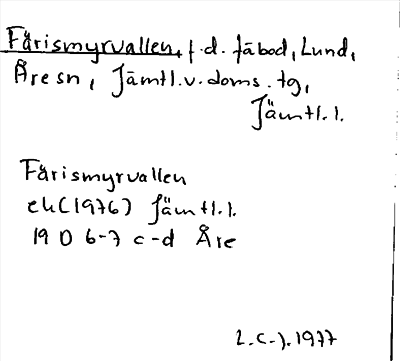 Fårismyrvallen, f.d. fäbod, Lund,
Åre sn, Jämtl.v. doms. tg,
Jämtl. l.
Fårismyrvallen
ek (1976) Jämtl. l.
19 D 6-7 c-d Åre
1977